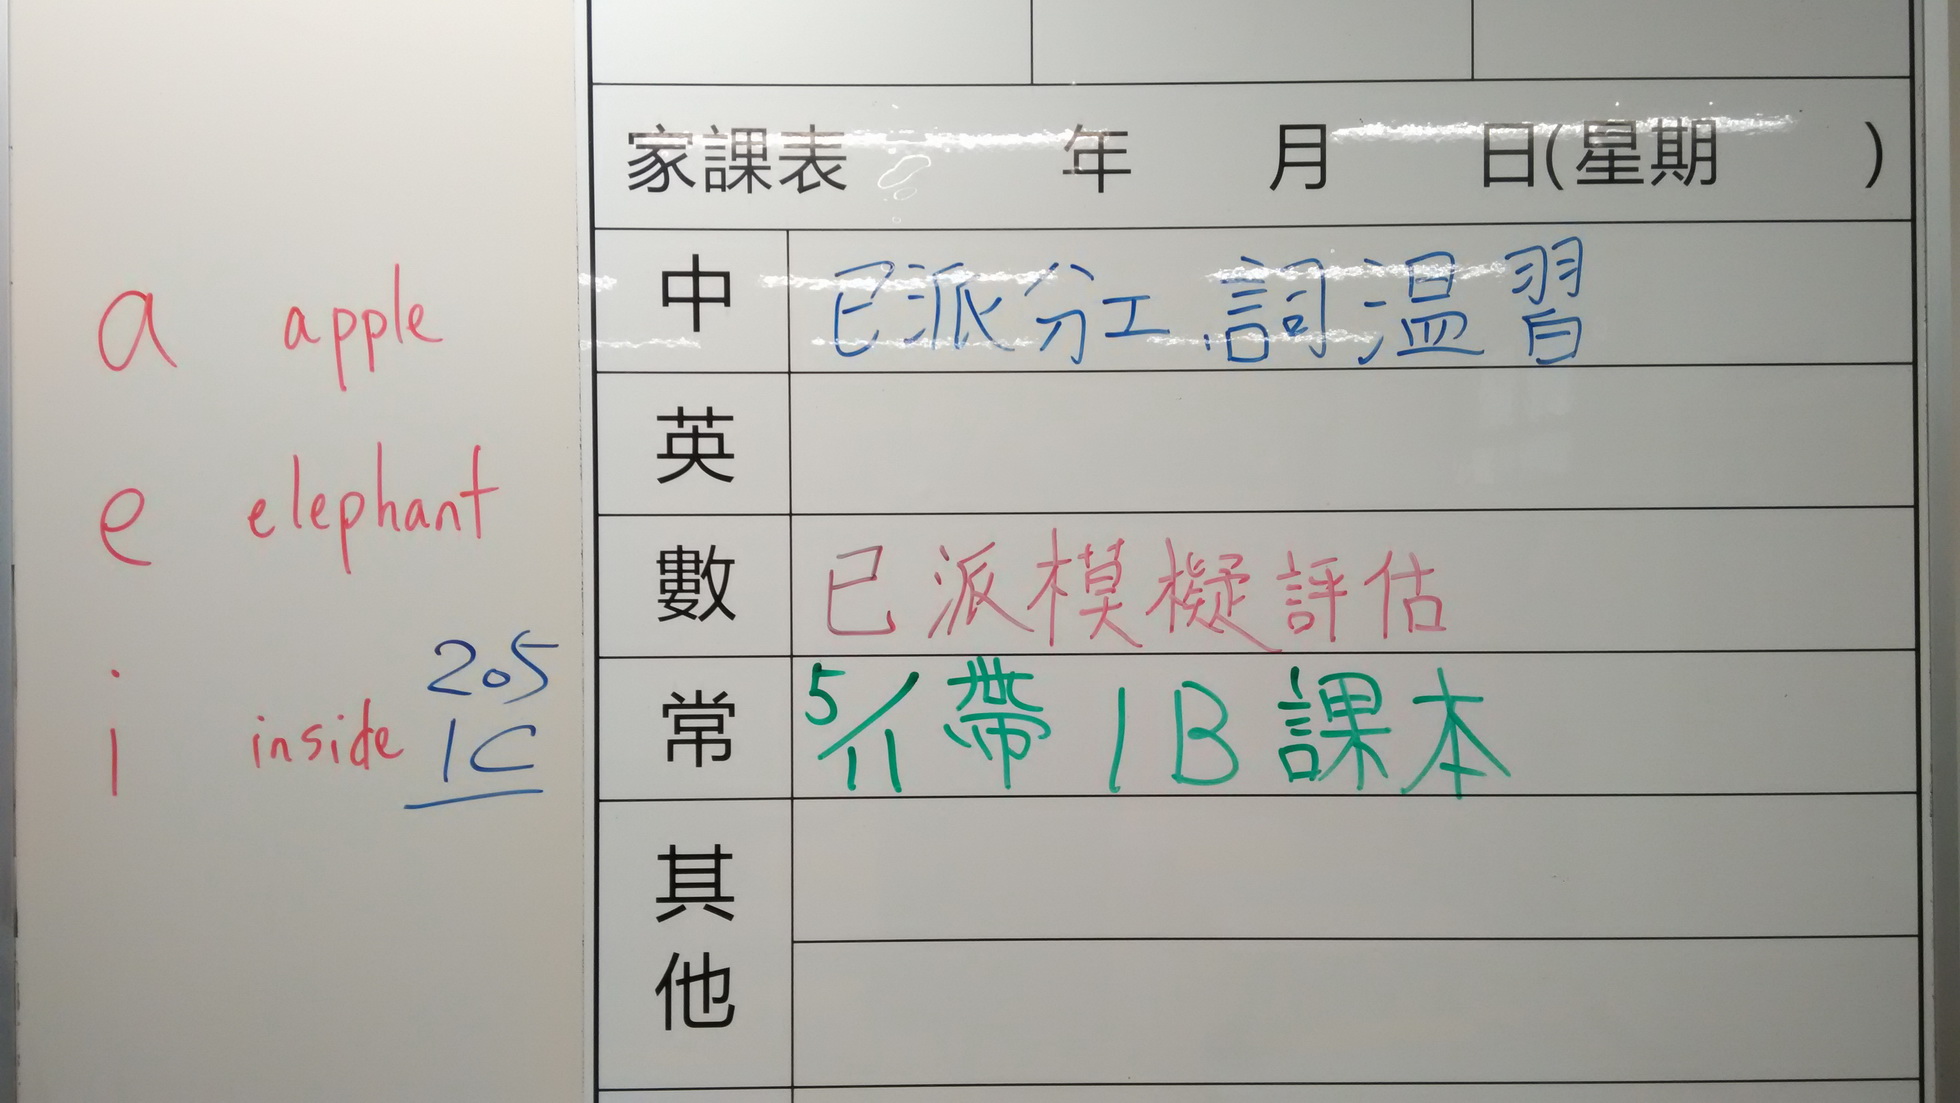 a apple
e elephant
i inside
205
1C
家課表 年 月 日(星期 )
中 已派分工、詞溫習
英
數 已派模擬評估
常 5/11帶1B課本
其他